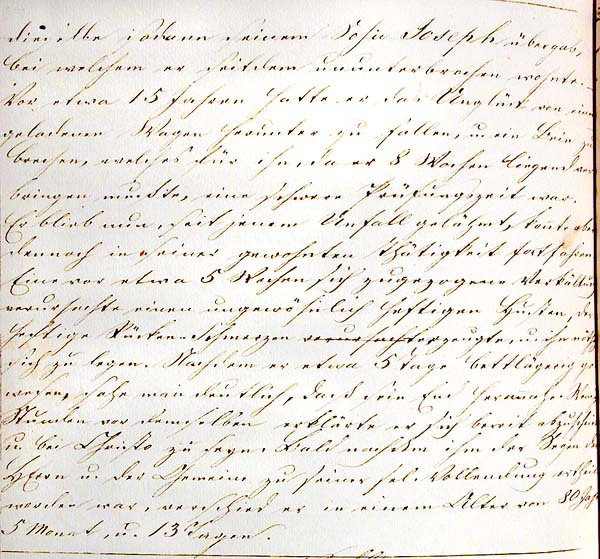 dieselbe sodann seinem Sohn Joseph übergab,
bei welchem er seitdem ununterbrochen wohnte. –
Vor etwa 15 Jahren hatte er das Unglück von einem
geladenen Wagen herunter zu fallen, u. ein Bein zu
brechen, welches für ihn, da er 8 Wochen liegend ver
bringen mußte, eine schwere Prüfungszeit war.
Er blieb nun, seit jenem Unfall gelähmt, konnte aber
dennoch in seiner gewohnten Thätigkeit fortfahren.
Eine vor etwa 5 Wochen sich zugezogene Verkältung
verursachte einen ungewöhnlich heftigen Husten, der
heftige Rücken Schmerzen verursachte erzeugte, u. ihn nöth
sich zu legen. Nachdem er etwa 5 Tage bettlägerig ge
wesen, sahe man deutlich, daß sein End herannahe.
Stunden vor demselben erklärte er sich bereit abzuscheiden
u. bei Christo zu seyn. Bald nachdem ihm der Segen des
HErrn u. der Gemeine zu seiner sel. Vollendung ertheilt
worden war, verschied er in einem Alter von 80 Jah
5 Monat, u. 13 Tagen.